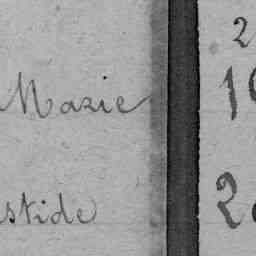 Mazie
stide
2
19
20